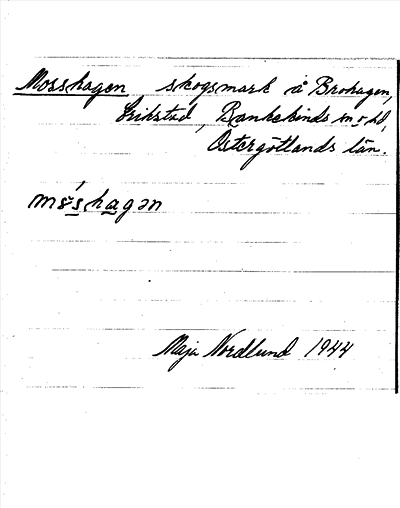 Mosshagen, skogsmark å Brohagen,
Grikstad, Bankekinds sn o hd,
Östergötlands län.
mo̊́s̲ha̲gən
Maja Nordlund 1944